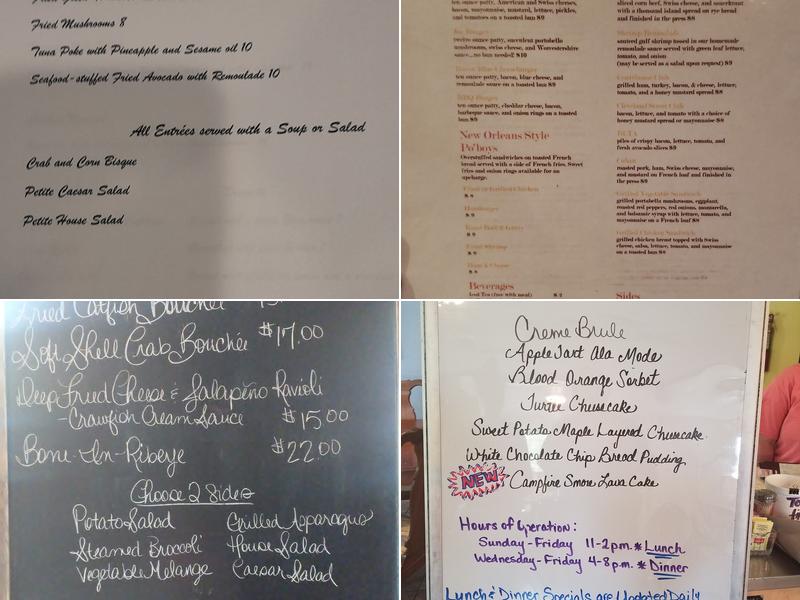 Fried Mushrooms 8
Tuna Poke with Pineapple and Sesame oil 10
Seafood-stuffed Fried Avocado with Remoulade 10
All Entrées served with a Soup or Salad
Crab and Corn Bisque
Petite Caesar Salad
Petite House Salad
ten ounce patty, American and Swiss cheeses,
bacon, mayonnaise, mustard, lettuce, pickles,
and tomatoes on a toasted bun $9
twelve ounce patty, succulent portobello
mushrooms, swiss cheese, and Worcestershire
sauce...no bun needed! $10
ten ounce patty, bacon, blue cheese, and
remoulade sauce on a toasted bun $9
BBQ Burger
ten ounce patty, cheddar cheese, bacon,
barbeque sauce, and onion rings on a toasted
bun $9
New Orleans Style
Po'boys
Overstuffed sandwiches on toasted French
bread served with a side of French fries. Sweet
fries and onion rings available for an
upcharge.
Fried or Grilled Chicken
$ 8
Hamburger
$ 8
Roast Beef & Gravy
$ 9
Fried Shrimp
$ 9
Ham & Cheese
$ 8
Beverages
Iced Tea (free with meal) $ 2
sliced corn beef, Swiss cheese, and sauerkraut
with a thousand island spread on rye bread
and finished in the press $8
Shrimp Remoulade
sauteed gulf shrimp tossed in our homemade
remoulade sauce served with green leaf lettuce,
tomato, and onion
(may be served as a salad upon request) $9
Courthouse Club
grilled ham, turkey, bacon, & cheese, lettuce,
tomato, and a honey mustard spread $8
Cleveland Street Club
bacon, lettuce, and tomato with a choice of
honey mustard spread or mayonnaise $8
BLTA
piles of crispy bacon, lettuce, tomato, and
fresh avocado slices $9
Cuban
roasted pork, ham, Swiss cheese, mayonnaise,
and mustard on French loaf and finished in
the press $8
Grilled Vegetable Sandwich
grilled portabella mushrooms, eggplant,
roasted red peppers, red onions, mozzarella,
and balsamic syrup with lettuce, tomato, and
mayonnaise on a French loaf $8
Grilled Chicken Sandwich
grilled chicken breast topped with Swiss
cheese, salsa, lettuce, tomato, and mayonnaise
on a toasted bun $8
Sides
Fried Catfish Bouchée
Soft Shell Crab Bouchée $17.00
Deep Fried Cheese & Jalapeño Ravioli
-Crawfish Cream Sauce $15.00
Bone-In-Ribeye $22.00
Choose 2 Sides
Potato Salad Grilled Asparagus
Steamed Broccoli House Salad
Vegetable Melange Caesar Salad
Creme Brule
Apple Tart Ala Mode
Blood Orange Sorbet
Turtle Cheesecake
Sweet Potato Maple Layered Cheesecake
White Chocolate Chip Bread Pudding
NEW Campfire Smore Lava Cake
Hours of Operation:
Sunday-Friday 11-2pm.*Lunch
Wednesday-Friday 4-8pm.*Dinner
Lunch & Dinner Specials are Updated Daily